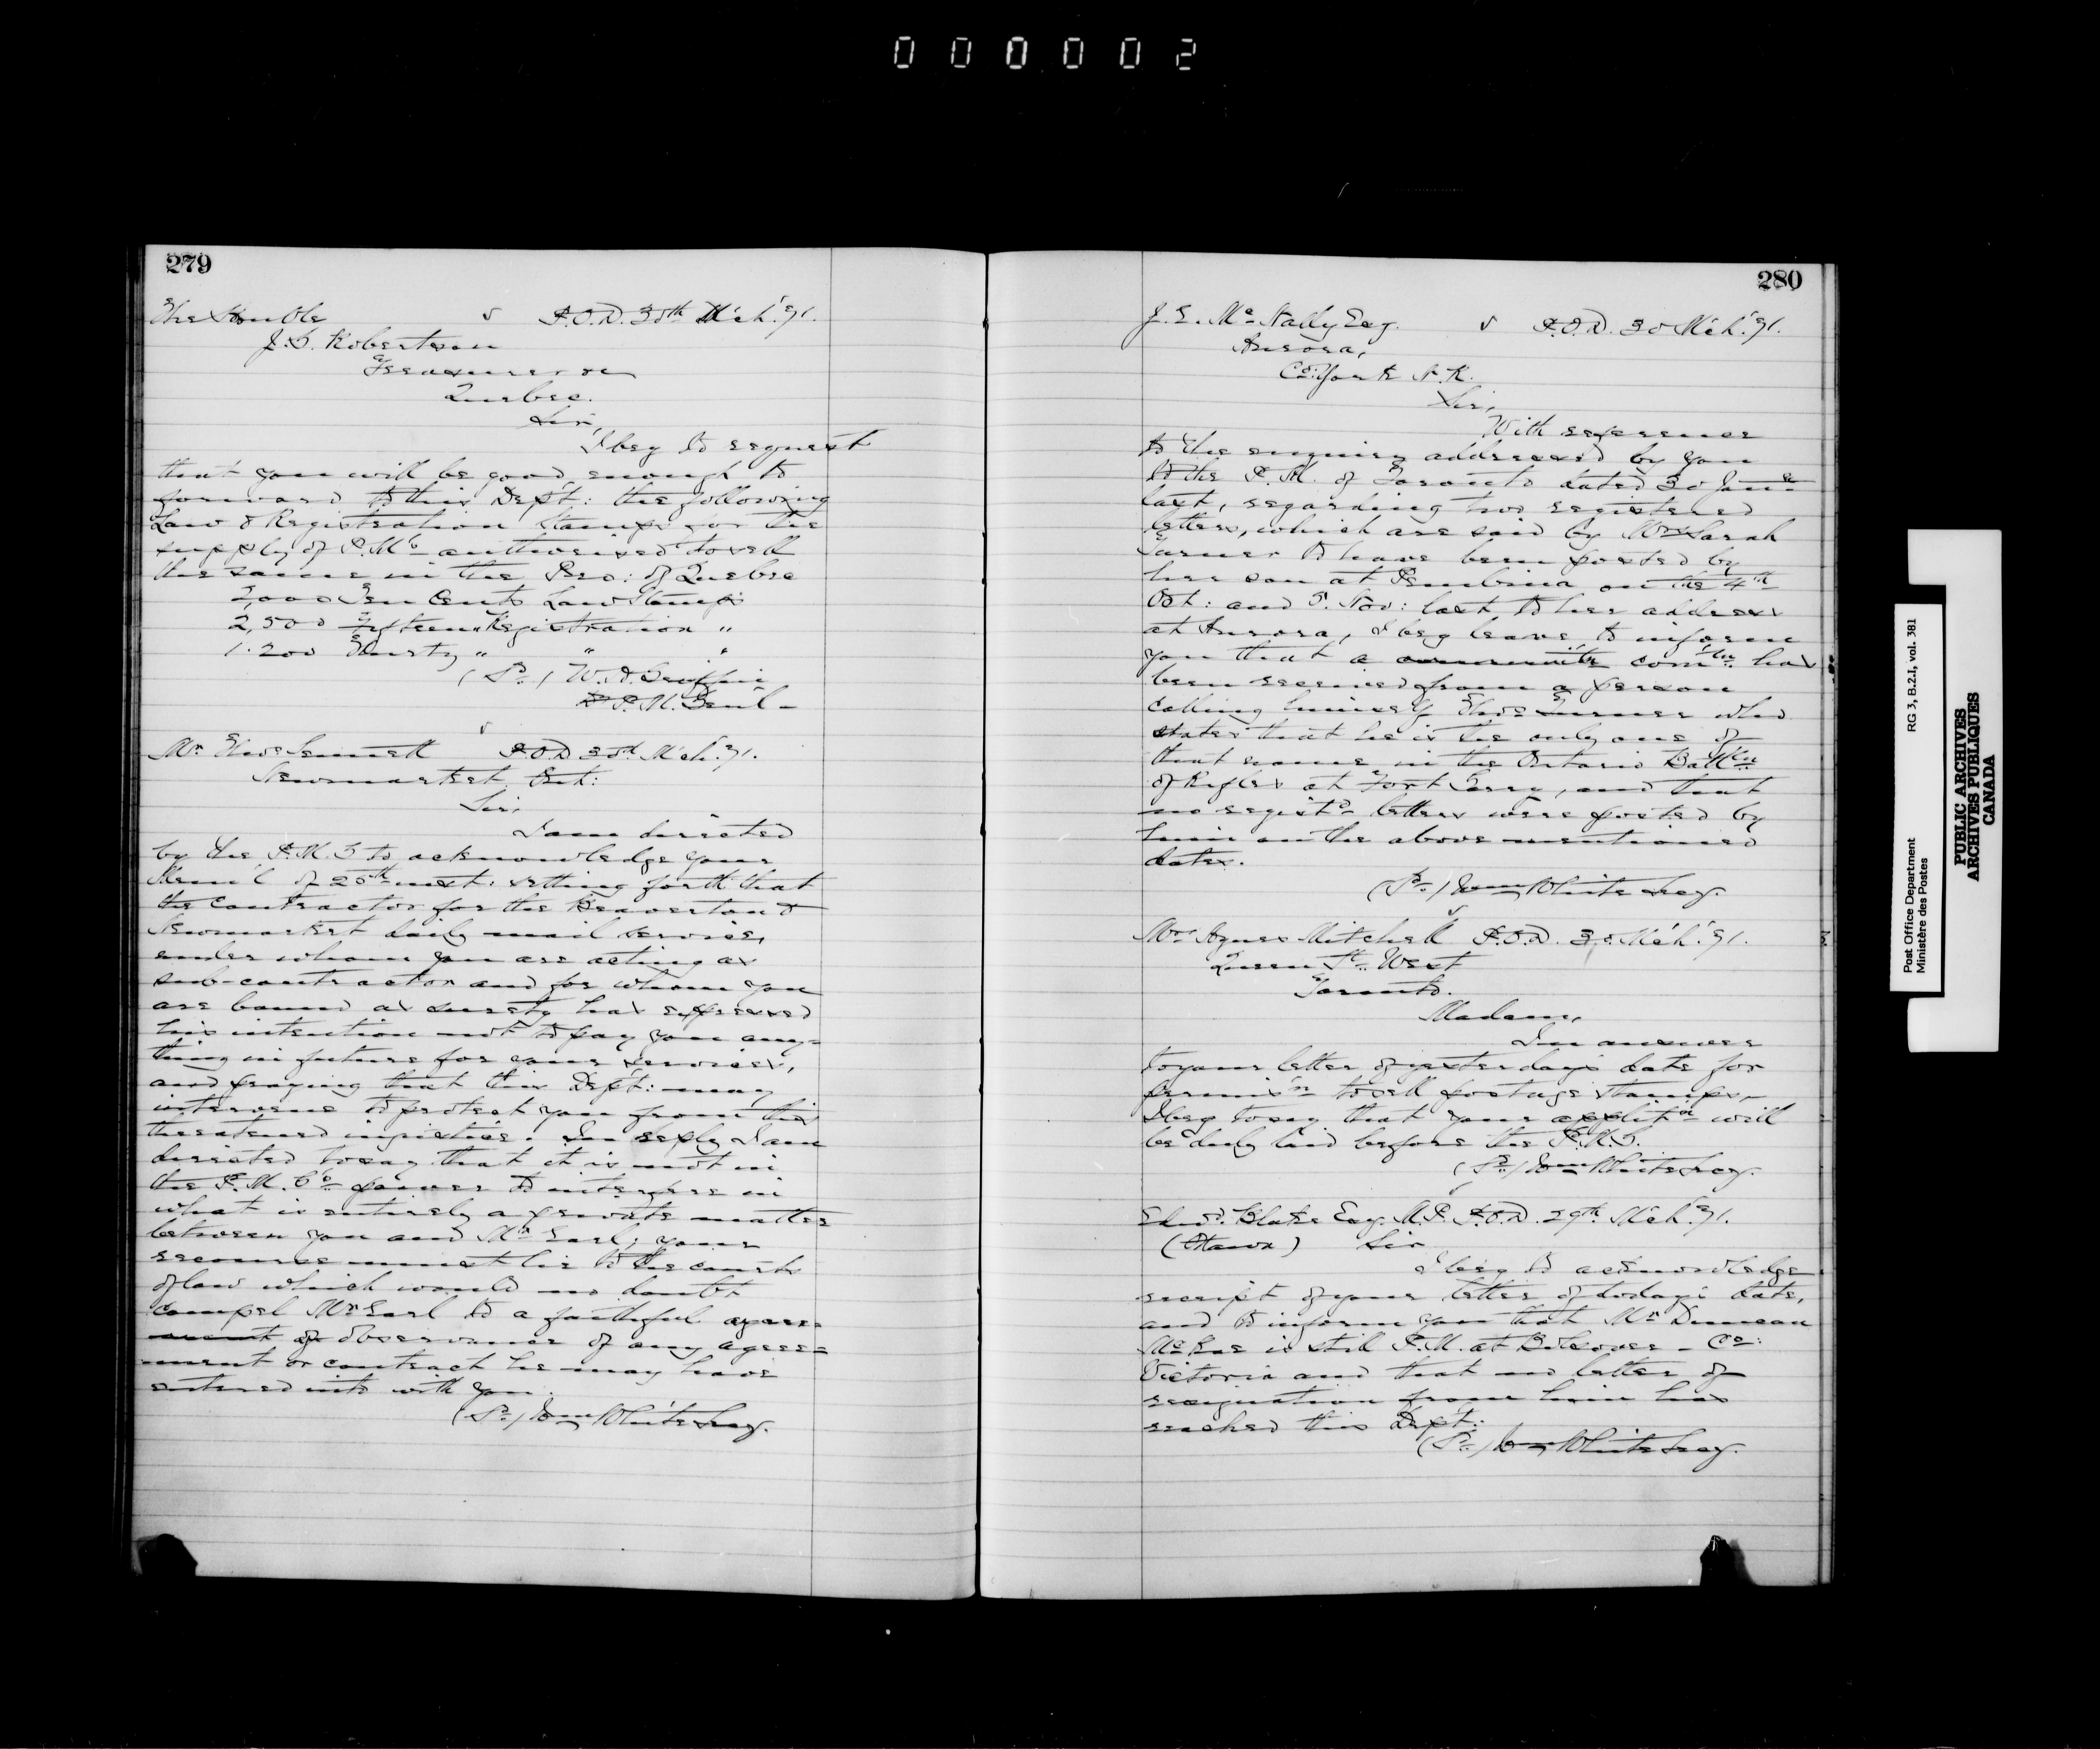 000002
279
The Honble P.O.D. 30th Mch. '71.
J. G. Robertson
Treasurer
Quebec.
Sir,
I beg to request
that you will be good enough to
forward to this Dept: the following
Law & Registration Stamps for the
supply of P.M's authorised to sell
the same in the Pro: of Quebec
2,000 Ten Cents Law Stamps
2,500 Fifteen " Registration "
1.200 Thirty " " "
(Sd) W. H. Griffin
D.P.M. Genl-
Mr Thos Sennett P.O.D 30th Mch. '71.
Newmarket, Ont:
Sir,
I am directed
by the P.M.G to acknowledge your
Mem'l of 25th inst: setting forth that
the contractor for the Beaverton &
Newmarket daily mail service,
under whom you are acting as
sub-contractor and for whom you
are bound as surety has expressed
his intention not to pay you any=
thing in future for your services,
and praying that this Dept: may
intervene to protect you from this
threatened injustice. In reply I am
directed to say that it is not in
the P.M.G's power to interfere in
what is entirely a private matter
between you and Mr Earl; your
recourse must lie to the courts
of law which would no doubt
compel Mr Earl to a faithful agree=
ment of observance of any agree=
ment or contract he may have
entered into with you.
(Sd) Wm White Secy.
280
J. E. Mc Nally Esq. P.O.D. 30 Mch. '71.
Aurora,
Co: York N.R.
Sir,
With reference
to the enquiry addressed by you
to the P.M. of Toronto dated 30 Jany
last, regarding two registered
letters, which are said by Mrs Sarah
Turner to have been posted by
her son at Pembina on the 4th
Oct: and 5. Nov: last to her address
at Aurora, I beg leave to inform
you that a communitn comtn has
been received from a person
calling himself Thos Turner who
states that he is the only one of
that name in the Ontario Battln
of Rifles at Fort Garry, and that
no registd letters were posted by
him on the above mentioned
dates.
(Sd) Wm White Secy.
Mrs Agnes Mitchell P.O.D. 30 Mch. '71.
Queen St. West
Toronto.
Madam,
In answer
to your letter of yesterday's date for
permis'n to sell postage stamps,-
I beg to say that your applictn will
be duly laid before the P.M.G.
(Sd) Wm White Secy.
Edwd. Blake Esq. M.P. P.O.D. 29th Mch. '71.
(Ottawa) Sir
I beg to acknowledge
receipt of your letter of today's date,
and to inform you that Mr Duncan
McRae is still P.M. at Bolsover - Co:
Victoria and that no letter of
resignation from him has
reached this Dept:
(Sd) Wm White Secy.
Post Office Department RG 3, B.2.I, vol. 381
Ministère des Postes
PUBLIC ARCHIVES
ARCHIVES PUBLIQUES
CANADA